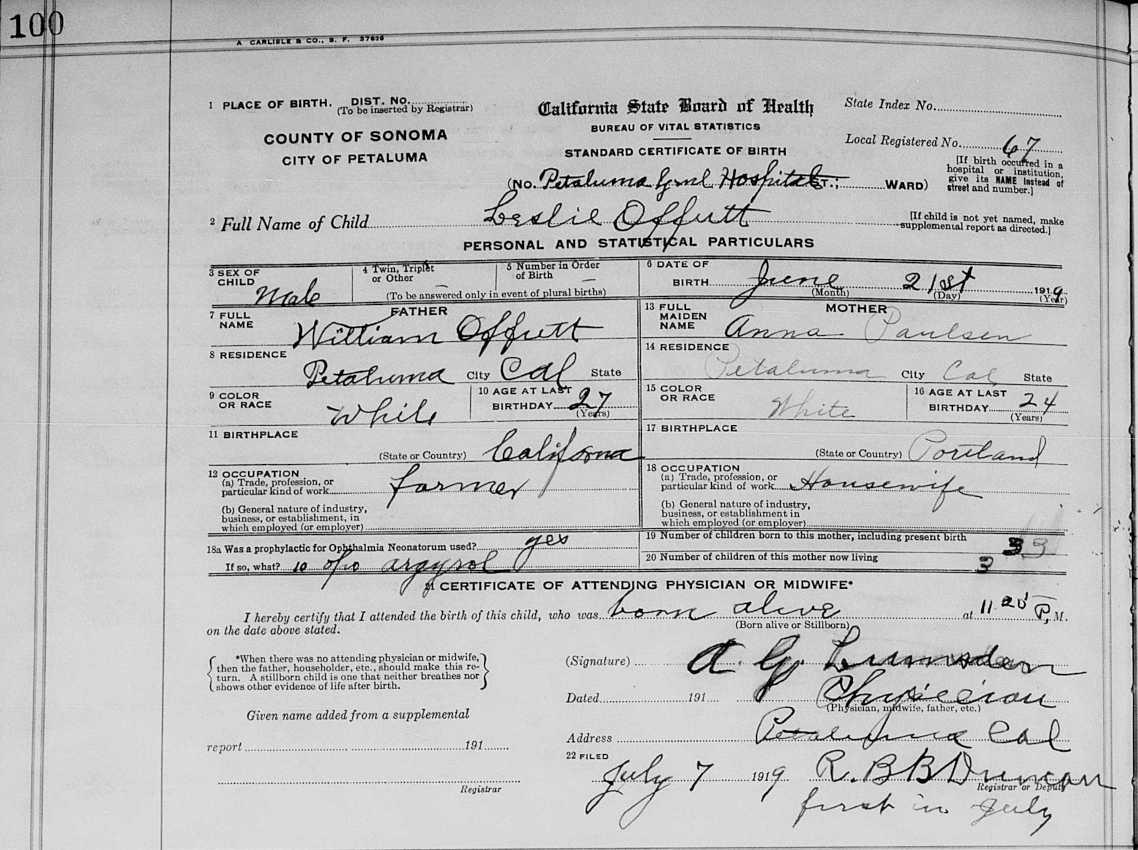 100
A CARLISLE & CO., S. F. 37626
1 PLACE OF BIRTH. DIST. No.
(To be inserted by Registrar)
COUNTY OF SONOMA
CITY OF PETALUMA
California State Board of Health
BUREAU OF VITAL STATISTICS
STANDARD CERTIFICATE OF BIRTH
State Index No.
Local Registered No. 67
(No. Petaluma Genl Hospital ST.; WARD)
[If birth occurred in a
hospital or institution,
give its NAME instead of
street and number.]
2 Full Name of Child Leslie Offutt
[If child is not yet named, make
supplemental report as directed.]
PERSONAL AND STATISTICAL PARTICULARS
3 SEX OF CHILD Male
4 Twin, Triplet or Other
5 Number in Order of Birth
(To be answered only in event of plural births)
6 DATE OF BIRTH June 21st 1919
(Month) (Day) (Year)
FATHER
7 FULL NAME William Offutt
8 RESIDENCE Petaluma City Cal State
9 COLOR OR RACE White
10 AGE AT LAST BIRTHDAY 27
(Years)
11 BIRTHPLACE
(State or Country) California
12 OCCUPATION
(a) Trade, profession, or
particular kind of work farmer
(b) General nature of industry,
business, or establishment, in
which employed (or employer)
MOTHER
13 FULL MAIDEN NAME Anna Paulsen
14 RESIDENCE Petaluma City Cal State
15 COLOR OR RACE White
16 AGE AT LAST BIRTHDAY 24
(Years)
17 BIRTHPLACE
(State or Country) Portland
18 OCCUPATION
(a) Trade, profession, or
particular kind of work Housewife
(b) General nature of industry,
business, or establishment in
which employed (or employer)
18a Was a prophylactic for Ophthalmia Neonatorum used? yes
If so, what? 10 o/o argyrol
19 Number of children born to this mother, including present birth 3 3
20 Number of children of this mother now living 3
21 CERTIFICATE OF ATTENDING PHYSICIAN OR MIDWIFE*
I hereby certify that I attended the birth of this child, who was born alive at 11 20 P. M.
(Born alive or Stillborn)
on the date above stated.
*When there was no attending physician or midwife,
then the father, householder, etc., should make this re-
turn. A stillborn child is one that neither breathes nor
shows other evidence of life after birth.
(Signature) A. G. Lumsden
Dated 191 Physician
(Physician, midwife, father, etc.)
Given name added from a supplemental
report 191
Registrar
Address Petaluma Cal
22 FILED
July 7 1919 R. B B Duncan
Registrar or Deputy
first in July